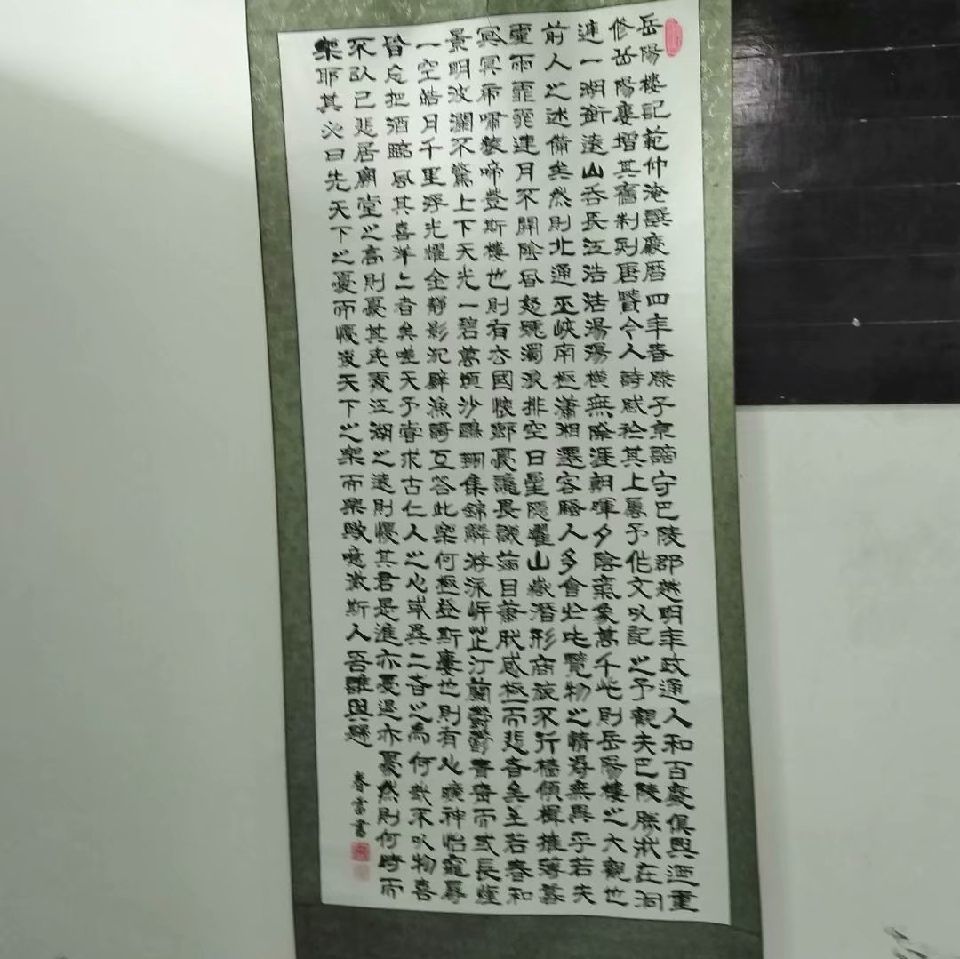 岳陽樓記範仲淹譔慶曆四年春滕子京謫守巴陵郡越明年政通人和百廢俱興迺重
修岳陽樓增其舊制刻唐賢今人詩賦於其上屬予作文以記之予觀夫巴陵勝狀在洞
庭一湖銜遠山吞長江浩浩湯湯橫無際涯朝暉夕陰氣象萬千此則岳陽樓之大觀也
前人之述備矣然則北通巫峽南極瀟湘遷客騷人多會於此覽物之情得無異乎若夫
霪雨霏霏連月不開陰風怒號濁浪排空日星隱耀山嶽潛形商旅不行檣傾楫摧薄暮
冥冥虎嘯猿啼登斯樓也則有去國懷鄉憂讒畏譏滿目蕭然感極而悲者矣至若春和
景明波瀾不驚上下天光一碧萬頃沙鷗翔集錦鱗游泳岸芷汀蘭鬱鬱青青而或長煙
一空皓月千里浮光耀金靜影沉璧漁歌互答此樂何極登斯樓也則有心曠神怡寵辱
皆忘把酒臨風其喜洋洋者矣嗟夫予嘗求古仁人之心或異二者之為何哉不以物喜
不以己悲居廟堂之高則憂其民處江湖之遠則憂其君是進亦憂退亦憂然則何時而
樂耶其必曰先天下之憂而憂後天下之樂而樂歟噫微斯人吾誰與歸
春雷書